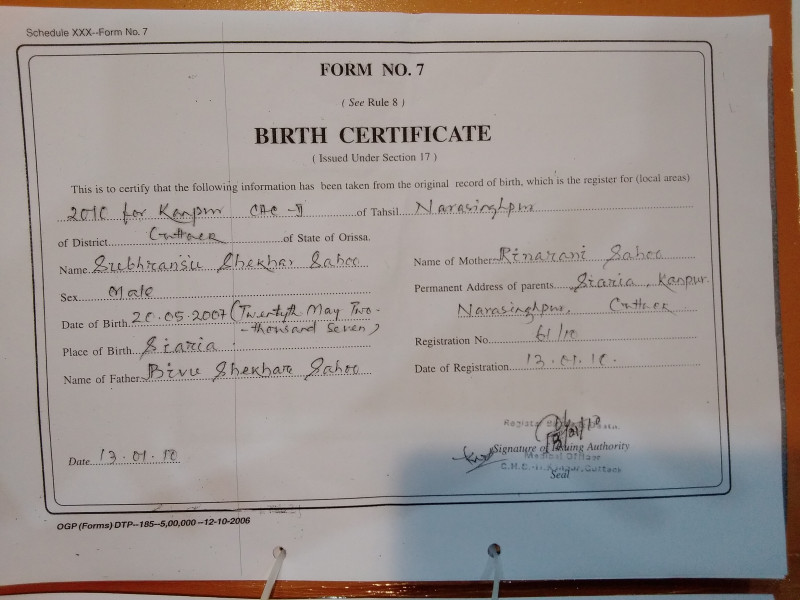 Schedule XXX--Form No. 7
FORM NO. 7
( See Rule 8 )
BIRTH CERTIFICATE
( Issued Under Section 17 )
This is to certify that the following information has been taken from the original record of birth, which is the register for (local areas)
2010 for Kanpur CHC-II of Tahsil Narasinghpur
of District Cuttack of State of Orissa.
Name Subhransu Shekhar Sahoo
Sex Male
Date of Birth 20.05.2007 (Twentyth May Two-
-thousand seven)
Place of Birth Siaria
Name of Father Bivu Shekhar Sahoo
Name of Mother Rinarani Sahoo
Permanent Address of parents Siaria, Kanpur
Narasinghpur, Cuttack
Registration No 61/10
Date of Registration 13.01.10.
Date 13.01.10
Signature of Issuing Authority
Medical Officer
Cuttack
Seal
OGP (Forms) DTP--185--5,00,000 --12-10-2006